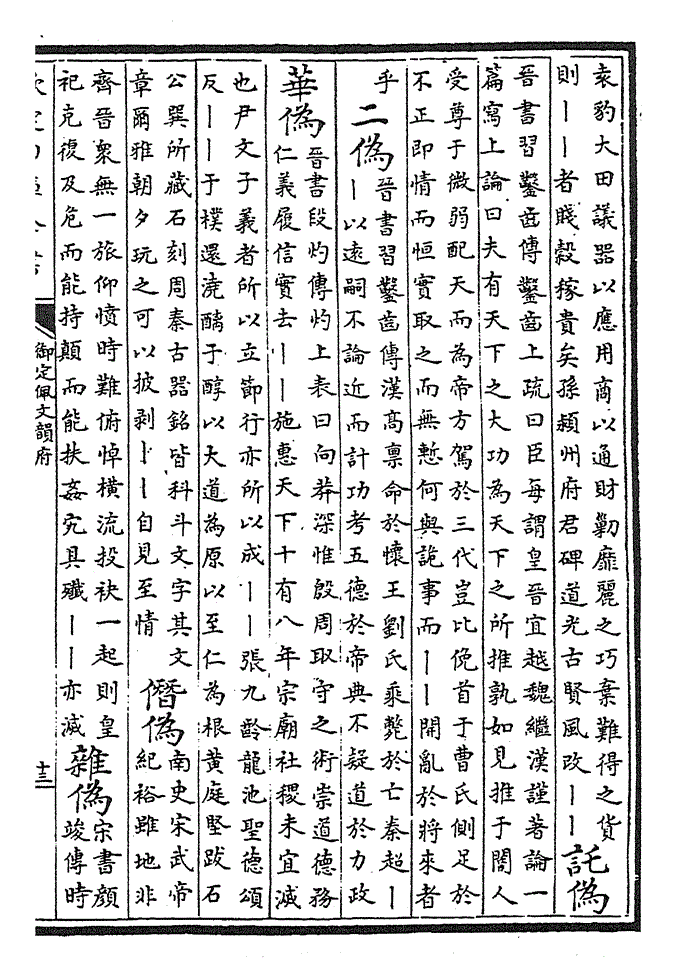 袁豹大田議器以應用商以通財勦靡麗之巧棄難得之貨
則丨丨者賤穀稼貴矣孫頳州府君碑道光古賢風改丨丨
託偽
晉書習鑿齒傳鑿齒上疏曰臣每謂皇晉宜越魏繼漢謹著論一
篇寫上論曰夫有天下之大功為天下之所推孰如見推于闇人
受尊于微弱配天而為帝方駕於三代豈比俛首于曹氏側足於
不正即情而恒實取之而無慙何與詭事而丨丨開亂於將來者
乎
二偽
晉書習鑿齒傳漢高禀命於懷王劉氏乘斃於亡秦超丨
丨以遠嗣不論近而計功考五德於帝典不疑道於力政
華偽
晉書段灼傳灼上表曰向莽深惟殷周取守之術崇道德務
仁義履信實去丨丨施惠天下十有八年宗廟社稷未宜滅
也尹文子義者所以立節行亦所以成丨丨張九齡龍池聖德頌
反丨丨于樸還澆醨于醇以大道為原以至仁為根黃庭堅跋石
公巽所藏石刻周秦古器銘皆科斗文字其文
章爾雅朝夕玩之可以披剥丨丨自見至情
僭偽
南史宋武帝
紀裕雖地非
齊晉衆無一旅仰憤時難俯悼橫流投袂一起則皇
祀克復及危而能持顛而能扶姦宄具殲丨丨亦滅
雜偽
宋書顔
竣傳時
御定佩文韻府
十三